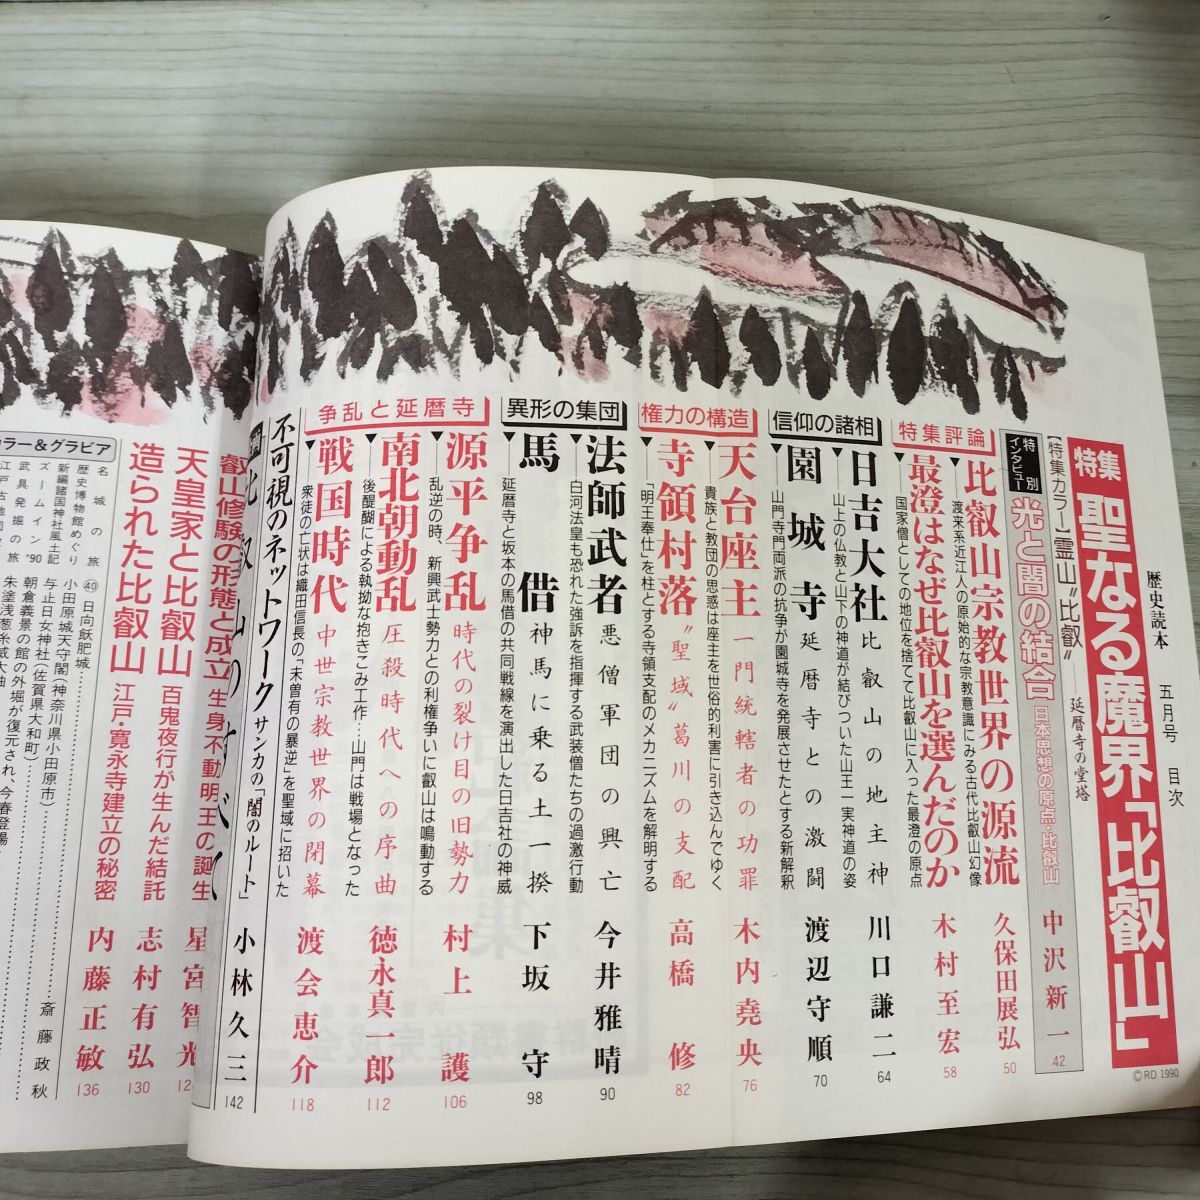 歴史読本 五月号 目次
特集 聖なる魔界「比叡山」
©RD 1990
【特集カラー】霊山〝比叡〟 延暦寺の堂塔
特別インタビュー 光と闇の結合 日本思想の原点・比叡山 中沢新一 42
特集評論
比叡山宗教世界の源流 久保田展弘 50
▼渡来系近江人の原始的な宗教意識にみる古代比叡山幻像
最澄はなぜ比叡山を選んだのか 木村至宏 58
▼国家僧としての地位を捨てて比叡山に入った最澄の原点
信仰の諸相
日吉大社 比叡山の地主神 川口謙二 64
▼山上の仏教と山下の神道が結びついた山王一実神道の姿
園城寺 延暦寺との激闘 渡辺守順 70
▼山門寺門両派の抗争が園城寺を発展させたとする新解釈
権力の構造
天台座主 一門統轄者の功罪 木内堯央 76
▼貴族と教団の思惑は座主を世俗的利害に引き込んでゆく
寺領村落 〝聖域〟葛川の支配 高橋修 82
▼「明王奉仕」を柱とする寺領支配のメカニズムを解明する
異形の集団
法師武者 悪僧軍団の興亡 今井雅晴 90
▼白河法皇も恐れた強訴を指揮する武装僧たちの過激行動
馬借 神馬に乗る土一揆 下坂守 98
▼延暦寺と坂本の馬借の共同戦線を演出した日吉社の神威
争乱と延暦寺
源平争乱 時代の裂け目の旧勢力 村上護 106
▼乱逆の時、新興武士勢力との利権争いに叡山は鳴動する
南北朝動乱 圧殺時代への序曲 徳永真一郎 112
▼後醍醐による執拗な抱きこみ工作…山門は戦場となった
戦国時代 中世宗教世界の閉幕 渡会恵介 118
▼衆徒の亡状は織田信長の「未曽有の暴逆」を聖域に招いた
不可視のネットワーク サンカの「闇のルート」 小林久三 142
比叡山のすべて
叡山修験の形態と成立 生身不動明王の誕生 星宮智光
天皇家と比叡山 百鬼夜行が生んだ結託 志村有弘 130
造られた比叡山 江戸・寛永寺建立の秘密 内藤正敏 136
カラー＆グラビア
名城の旅 ㊵ 日向飫肥城
歴史博物館めぐり 小田原城天守閣（神奈川県小田原市）
新編諸国神社風土記 与止日女神社（佐賀県大和町）
ズームイン'90 朝倉義景の館の外堀が復元され、今春登場 斎藤政秋
武具発掘の旅